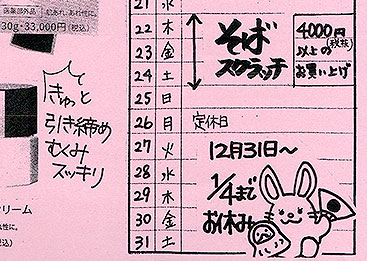 医薬部外品
肌あれ、あれ性に。
30g・33,000円(税込)
きゅっと
引き締め
むくみ
スッキリ
リーム
21 水
22 木
23 金
24 土
25 日
26 月 定休日
27 火
28 水
29 木
30 金
31 土
そば
スクラッチ
4000円
(税抜)
以上の
お買い上げ
12月31日～
1/4まで
お休み